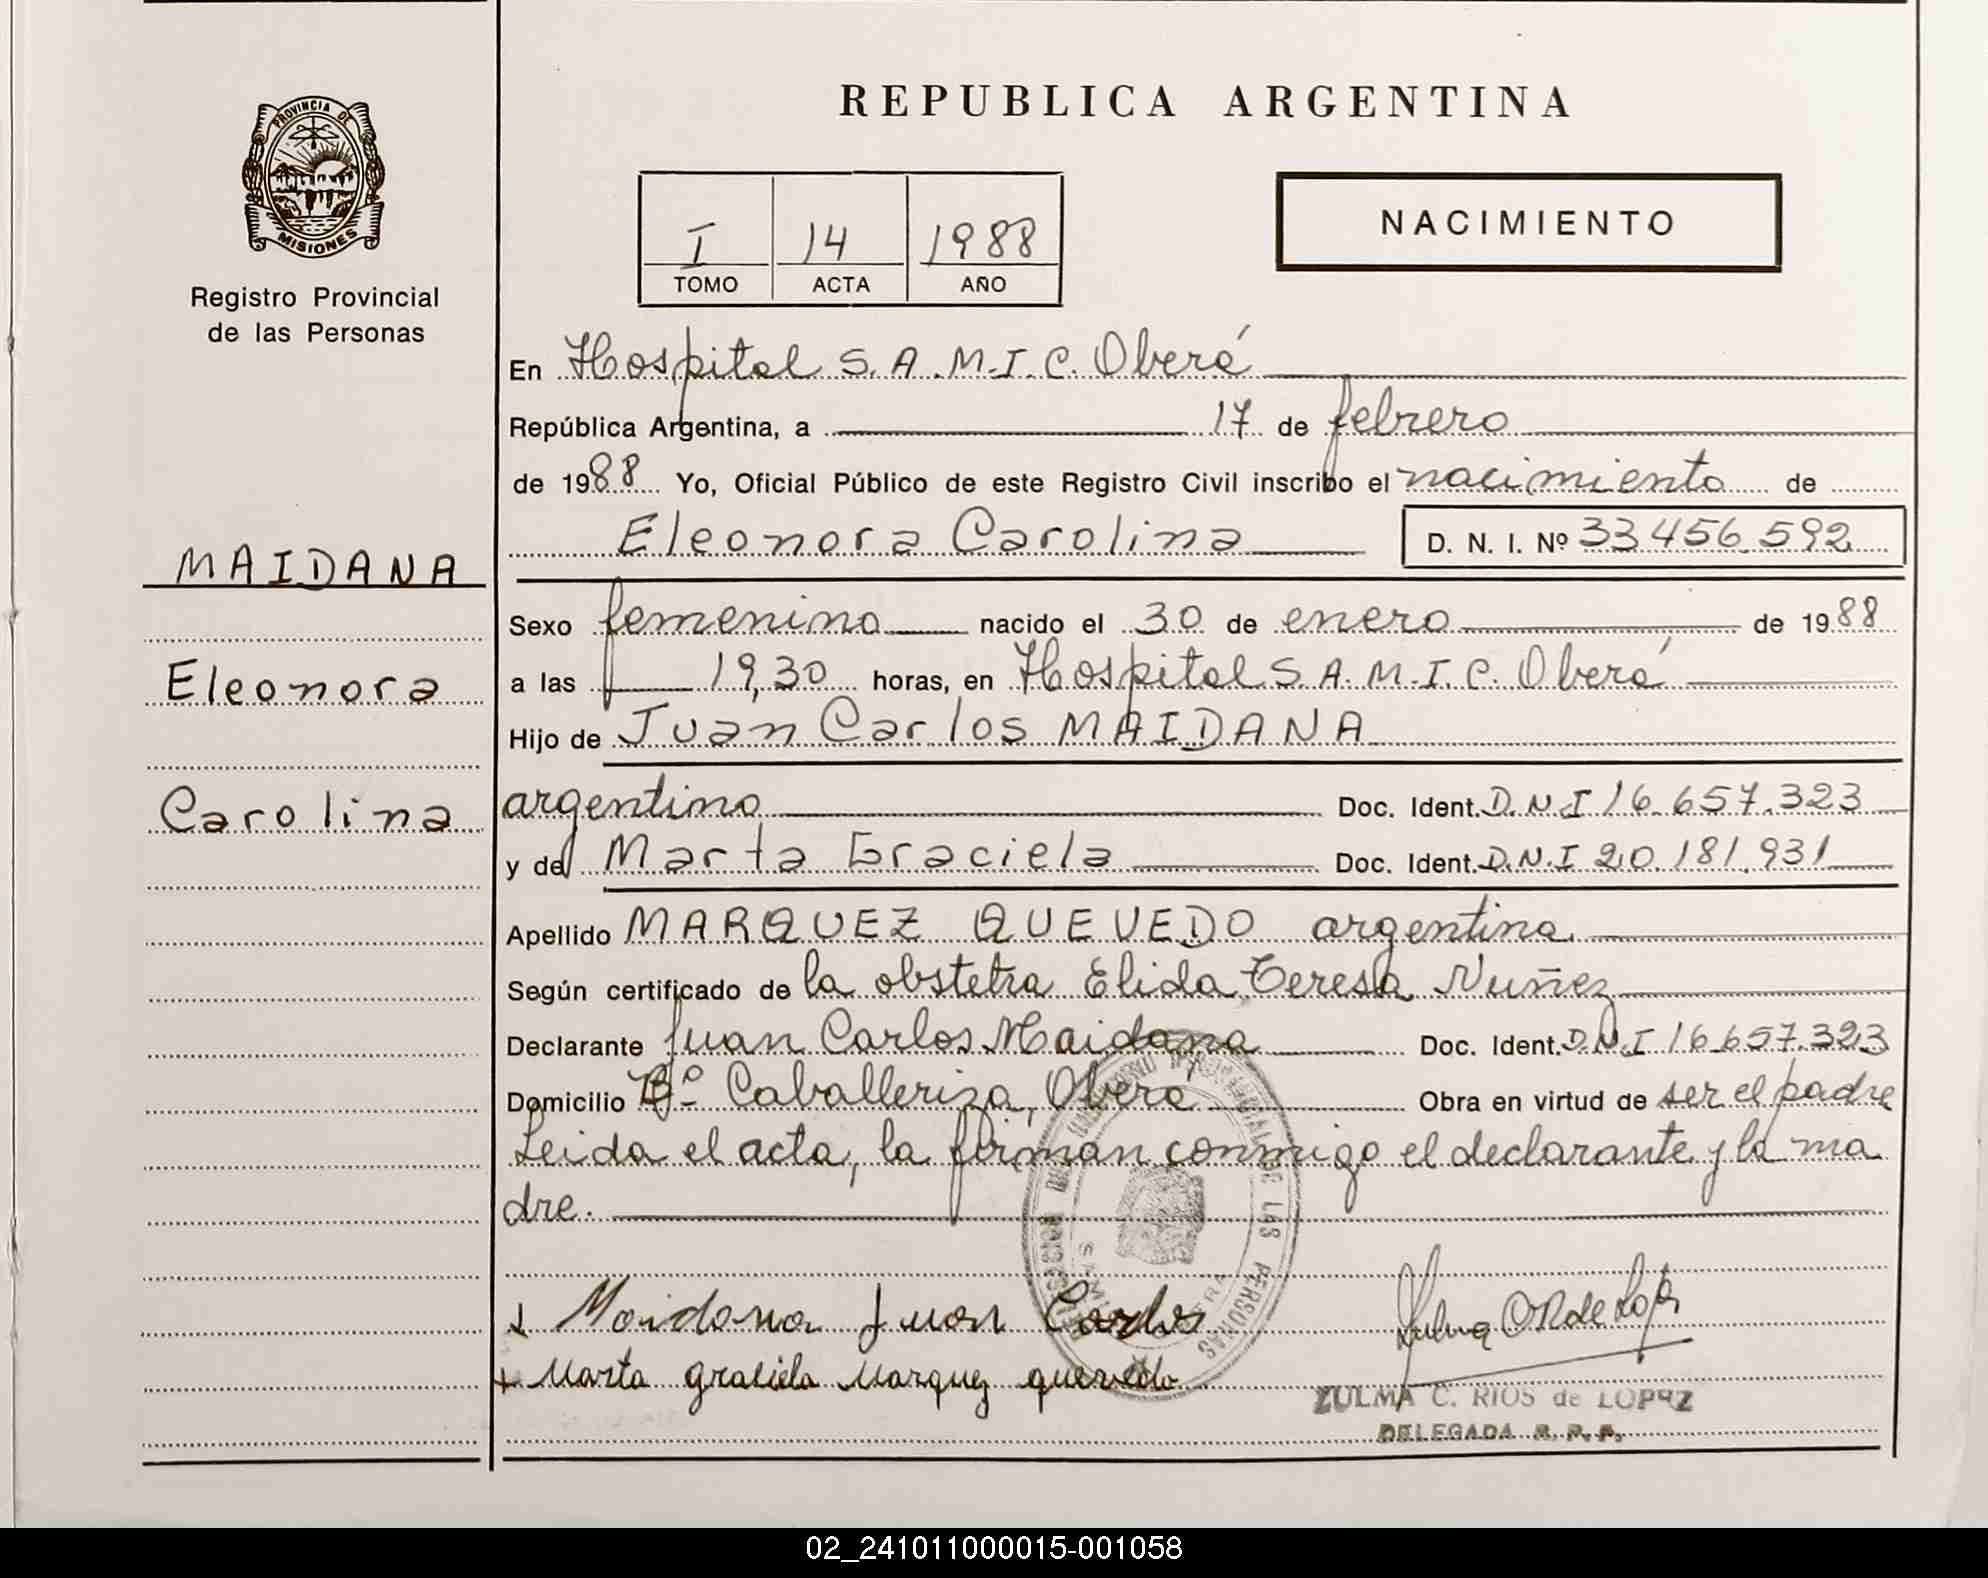 PROVINCIA DE
MISIONES
Registro Provincial
de las Personas
MAIDANA
Eleonora
Carolina
REPUBLICA ARGENTINA
I 14 1988
TOMO ACTA AÑO
NACIMIENTO
En Hospital S.A.M.I.C. Oberá
República Argentina, a 17 de febrero
de 1988 Yo, Oficial Público de este Registro Civil inscribo el nacimiento de
Eleonora Carolina D. N. I. Nº 33.456.592
Sexo femenino nacido el 30 de enero de 1988
a las 19,30 horas, en Hospital S.A.M.I.C. Oberá
Hijo de Juan Carlos MAIDANA
argentino Doc. Ident. D.N.I 16.657.323
y de Marta Graciela Doc. Ident. D.N.I 20.181.931
Apellido MARQUEZ QUEVEDO argentina
Según certificado de la obstetra Elida Teresa Nuñez
Declarante Juan Carlos Maidana Doc. Ident. D.N.I 16.657.323
Domicilio Bº Caballeriza, Oberá Obra en virtud de ser el padre
Leida el acta, la firman conmigo el declarante y la ma
dre.
Maidana Juan Carlos
Marta graciela Marquez quevedo
ZULMA C. RIOS de LOPEZ
DELEGADA R. P. P.
02_241011000015-001058